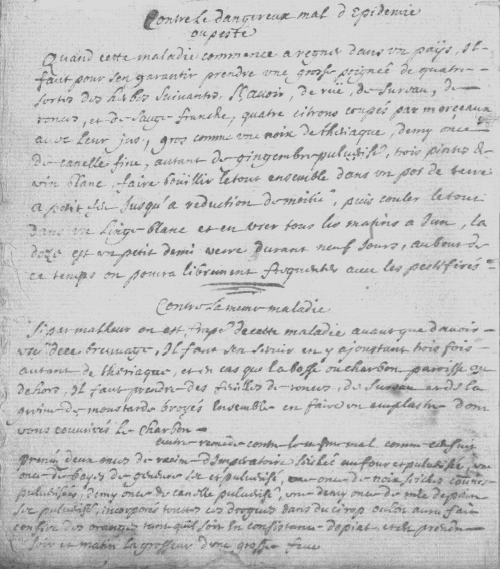 Contre Le dangereux mal d'Epidemie
ou peste
Quand cette maladie commence a regner dans un païs, Il
faut pour s'en garantir prendre une grosse poignée de quatre
sortes des herbes suivantes, sçavoir, de rue, de sureau, de
ronces, et de sauge franche, quatre citrons coupés par morceaux
avec leur jus, gros comme une noix de theriaque, demy once
de canelle fine, autant de gingembre pulverisé, trois pintes de
vin blanc, faire bouillir le tout ensemble dans un pot de terre
a petit feu Jusqu'a reduction de moitié, puis couler le tout
dans un linge blanc et en user tous les matins a Jun, la
doze est un petit demi verre durant neuf Jours, au bout de
ce temps on pourra librement frequenter avec les pestiferés
Contre la meme maladie
Si par malheur on est frapé de cette maladie avant que d'avoir
usé de ce breuvage, Il faut s'en servir en y ajoustant trois fois
autant de theriaque, et en cas que la bosse ou charbon paroisse au
dehors, Il faut prendre des feuilles de ronces, de sureau et de la
graine de moustarde broyés ensemble en faire un emplastre dont
vous couvrirés le charbon
autre remede contre le meme mal comme
prenés deux onces de racine d'Imperatoire sechée au four et pulverisée, une
once de bayes de genevre sec et pulverisé, une once de noix
pulverisées, demy once de canelle pulverisée, une demy once de
sec pulverisé, incorporés toutes ces drogues dans du sirop ou l'on aura fait
confire des oranges tant qu'il soit en consistance d'opiat et en prendre
soir et matin la grosseur d'une grosse feve